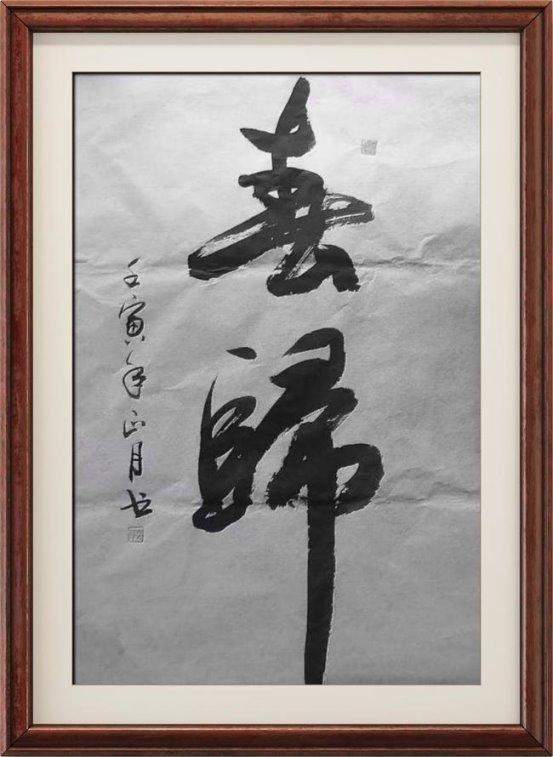 春歸
壬寅年正月书